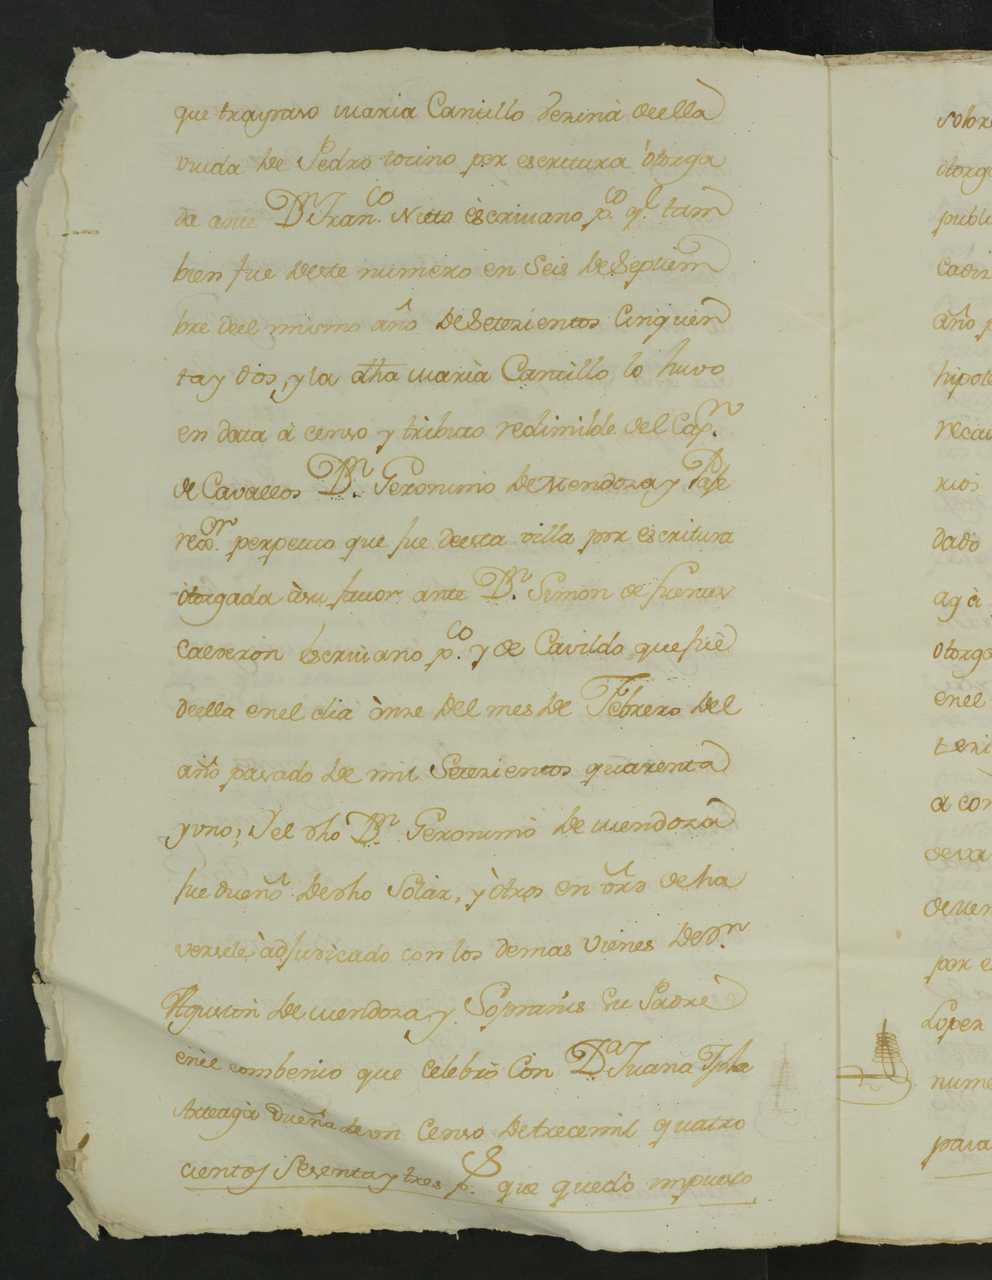 que traspaso maria Cantillo vezina deella
viuda de Pedro tocino por escritura otorga
da ante Dn. Franco. Nieto escrivano pco. qe. tam
bien fue deeste numero en Seis de Septiem
bre del mismo año de Setezientos Cinquen
ta y dos, y la dha maria Cantillo lo huvo
en data à censo y tributo redimible del Capn.
de Cavallos Dn. Geronimo de Mendoza y
regor. perpetuo que fue deesta villa por escritura
otorgada àsu favor ante Dn. Simon de fuentes
Calderon Escrivano pco. y de Cavildo que fuè
deella enel dia ònze del mes de Febrero del
año pasado de mil Setezientos quarenta
yuno; Y el dho Dn. Geronimo de mendoza
fue dueño de dho Solar, y òtros en òrn de ha
versele àdjudicado con los demas vienes de Dn.
Agustin de mendoza y Sopranis su Padre
enel combenio que celebrò Con Da. Juana Jpha
Arteaga Dueña de un Censo de trecemil quatro
cientos Sesenta y tres ps. que quedò impuesto
sobre
otorga
publi
año p
hipote
recau
rios
dado
otorga
enel
a con
deva
por e
Lopez
nume
para